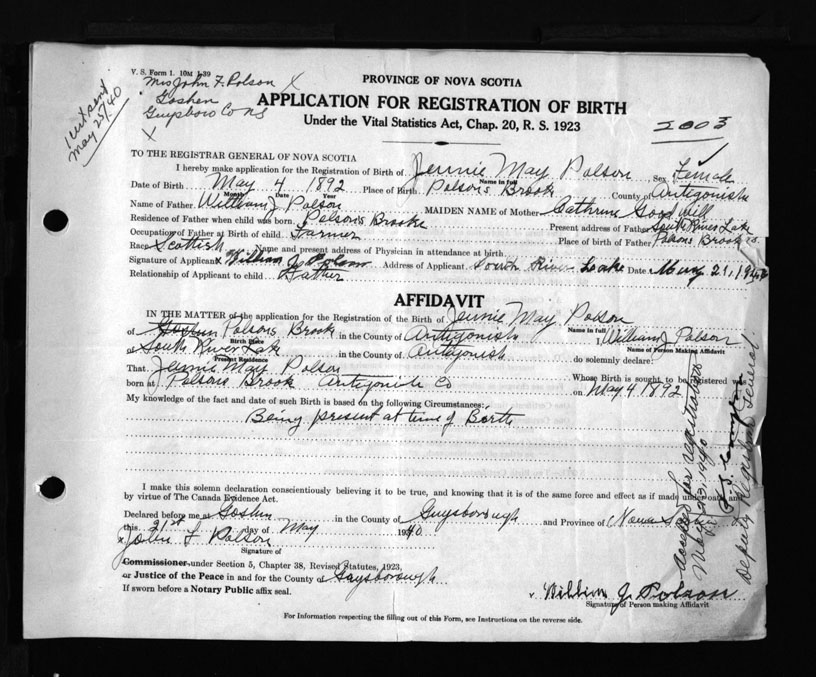 V. S. Form 1. 10M 1-39
Mrs John F. Polson X
Goshen
Guysboro Co NS
X
1 cert sent
May 25/40
PROVINCE OF NOVA SCOTIA
APPLICATION FOR REGISTRATION OF BIRTH
Under the Vital Statistics Act, Chap. 20, R. S. 1923
2003
TO THE REGISTRAR GENERAL OF NOVA SCOTIA
I hereby make application for Registration of Birth of Jennie May Polson Sex Female
Name in full
Date of Birth May 4 1892 Place of Birth Polsons Brook County of Antigonish
Month Date Year
Name of Father William J Polson MAIDEN NAME of Mother Cathrine Good Will
Residence of Father when child was born. Polson's Brooke Present address of Father South River Lake
Occupation of Father at Birth of child. Farmer Place of birth of Father Polsons Brook
Race Scottish Name and present address of Physician in attendance at birth
Signature of Applicant x William J Polson Address of Applicant South River Lake Date May 21, 1940
Relationship of Applicant to child Father
AFFIDAVIT
IN THE MATTER of the application for the Registration of the Birth of Jennie May Polson
Name in full
of Goshen Polsons Brook in the County of Antigonish I, William J Polson
Birth Place
Name of Person Making Affidavit
of South River Lake in the County of Antigonish do solemnly declare:
Present Residence
That Jennie May Polson Whose Birth is sought to be registered
born at Polsons Brook Antigonish Co on May 4 1892
My knowledge of the fact and date of such Birth is based on the following Circumstances:
Being present at time of Birth
I make this solemn declaration conscientiously believing it to be true, and knowing that it is of the same force and effect as if made under oath and
by virtue of The Canada Evidence Act.
Declared before me at Goshen in the County of Guysborough and Province of Nova Scotia
this 21st day of May 1940
x John F Polson
Signature of
Commissioner under Section 5, Chapter 38, Revised Statutes, 1923,
or Justice of the Peace in and for the County of Guysborough
If sworn before a Notary Public affix seal.
x William J. Polson
Signature of Person making Affidavit
For Information respecting the filling out of this Form, see Instructions on the reverse side.
Accepted for registration
May 25, 1940
Deputy Registrar General.